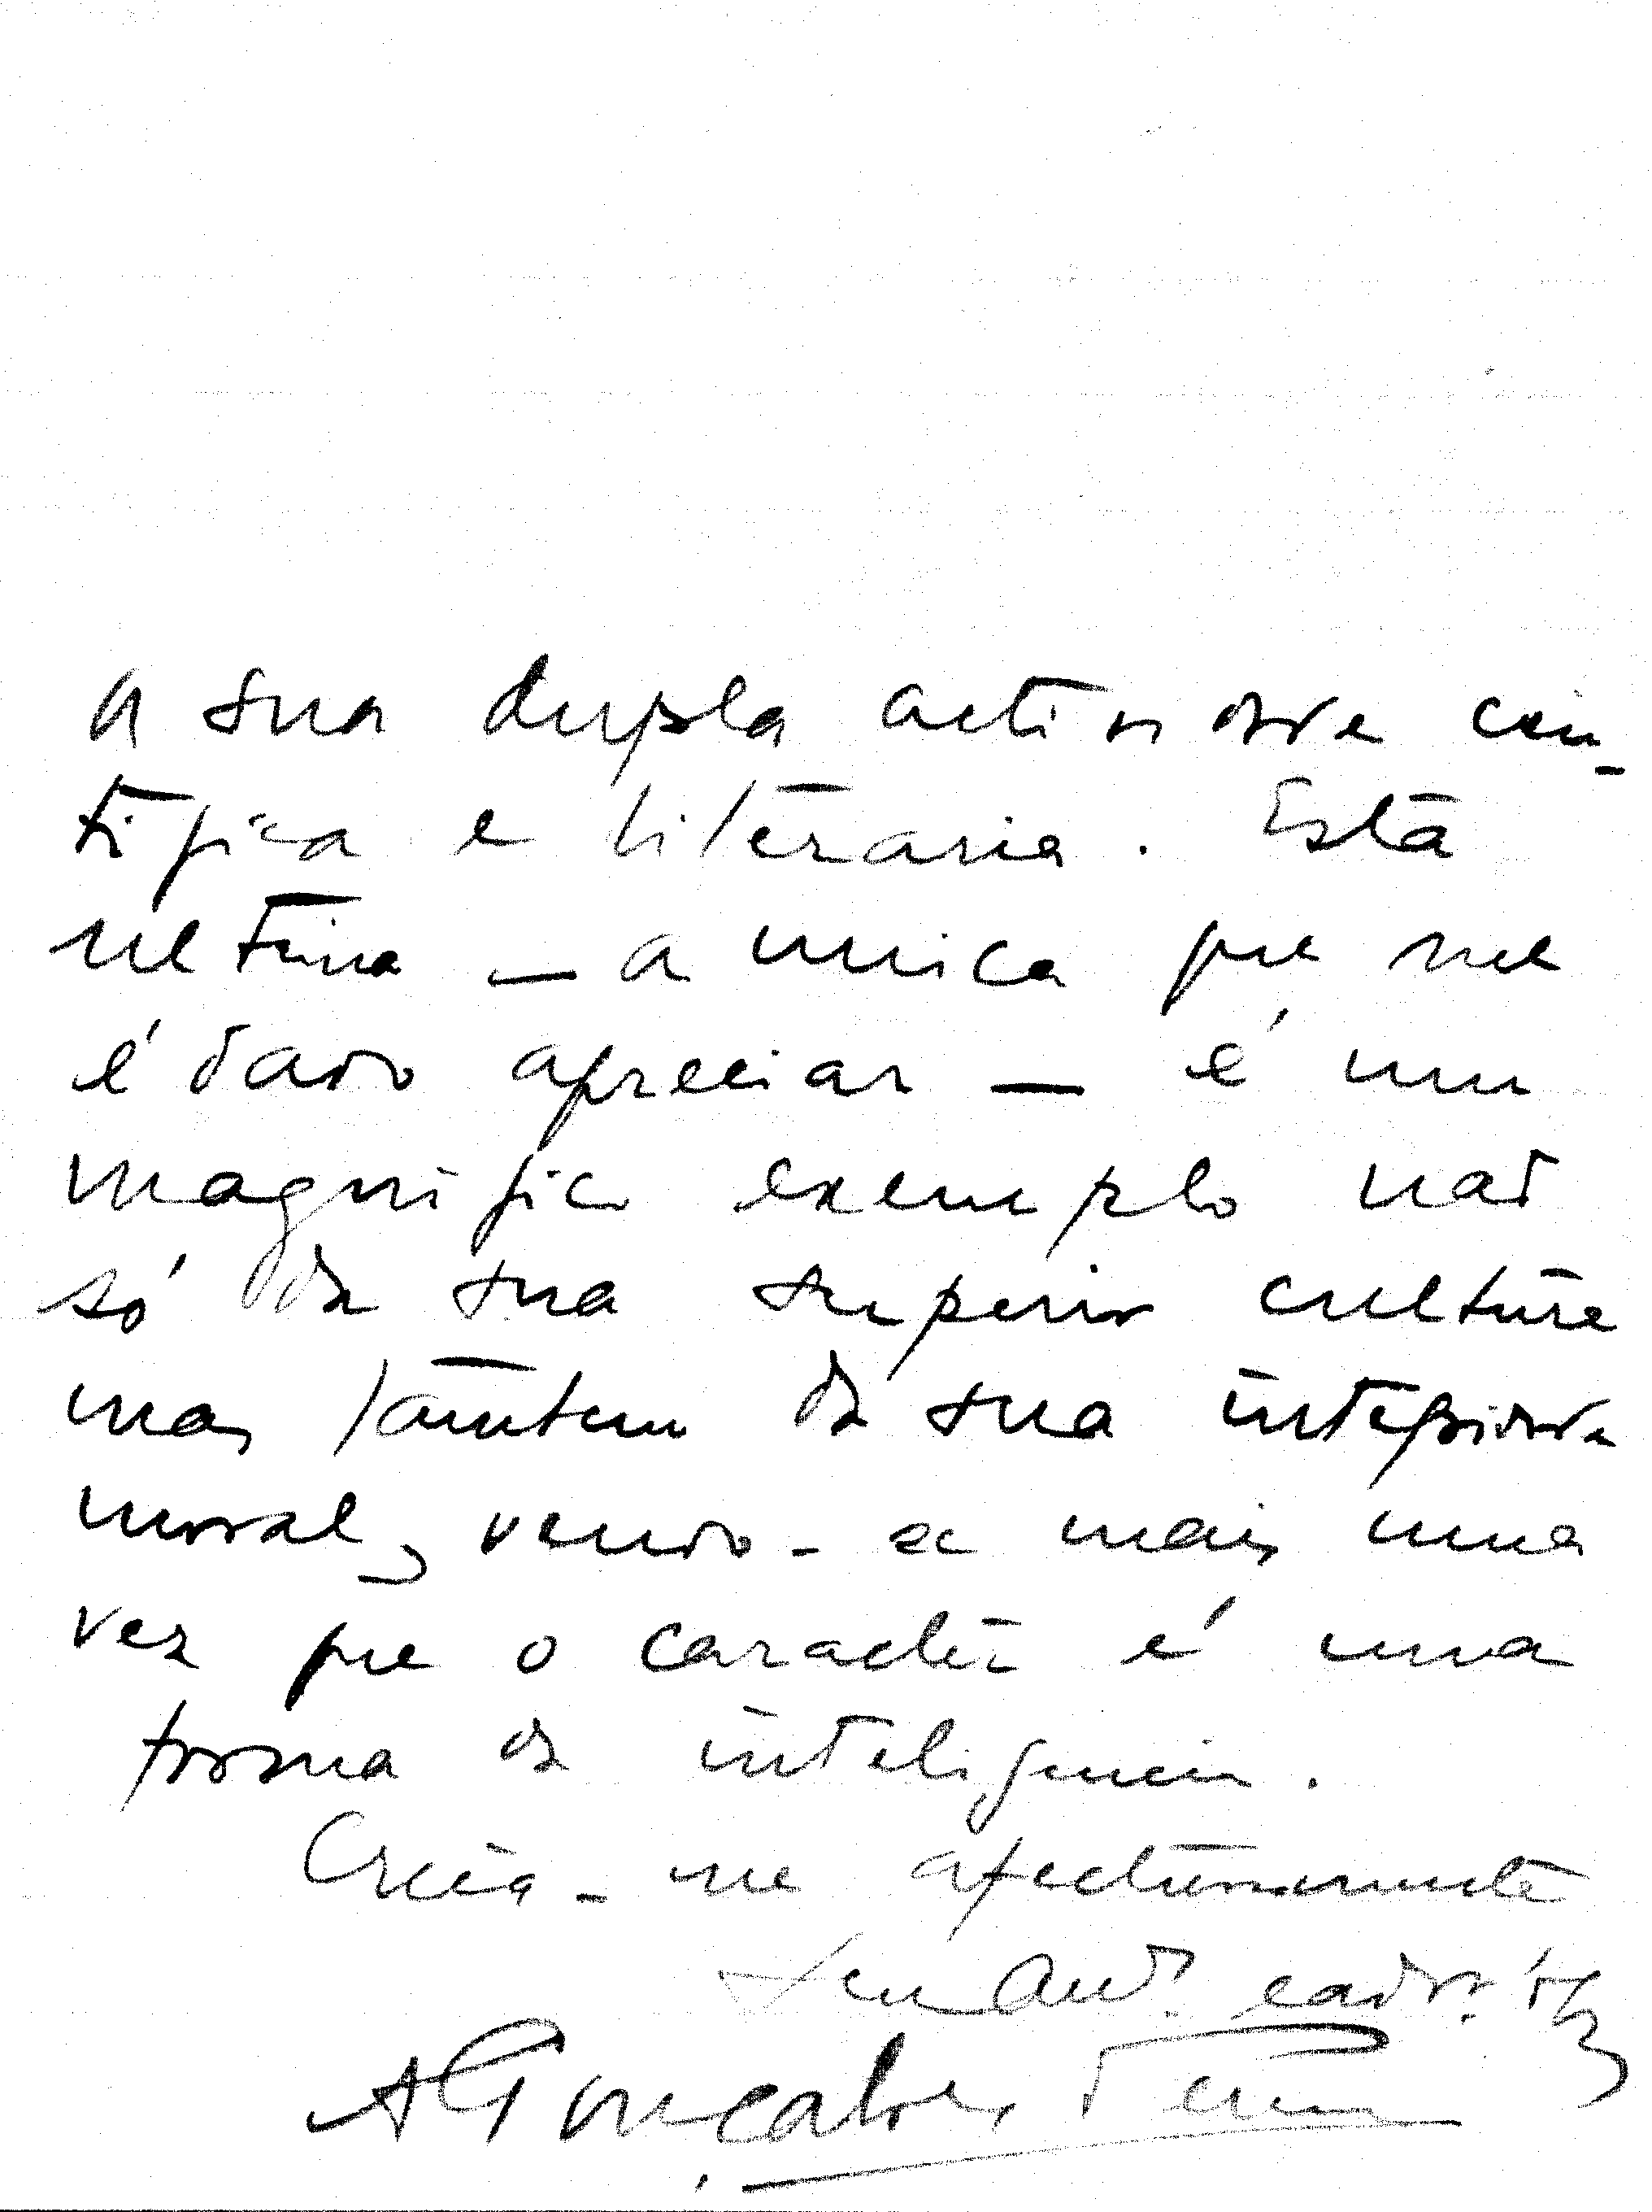 a sua dupla actividade cien-
tifica e literaria. Esta
ultima — a unica que me
é dado apreciar — é um
magnifico exemplo não
só da sua superior cultura
mas tambem da sua integridade
moral, vendo-se mais uma
vez que o caracter é uma
forma de inteligencia.
Creia-me afectuosamente
seu
A Gonçalves